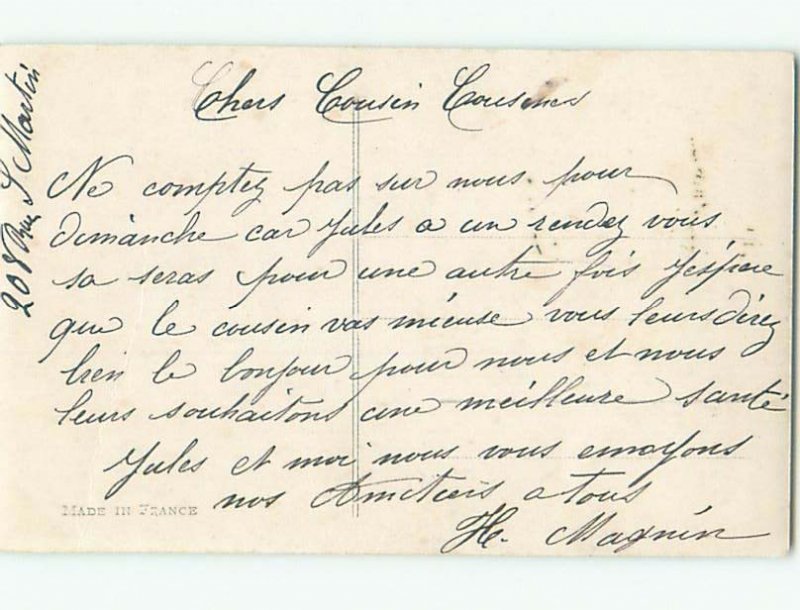 Chers Cousin Cousines
Ne comptez pas sur nous pour
dimanche car Jules a un rendez vous
sa seras pour une autre fois J'éspere
que le cousin vas mieuse vous leurs direz
bien le bonjour pour nous et nous
leurs souhaitons une meilleure santé
Jules et moi nous vous envoyons
nos Amitiers a tous
H. Magnin
208 Rue S Martin
MADE IN FRANCE